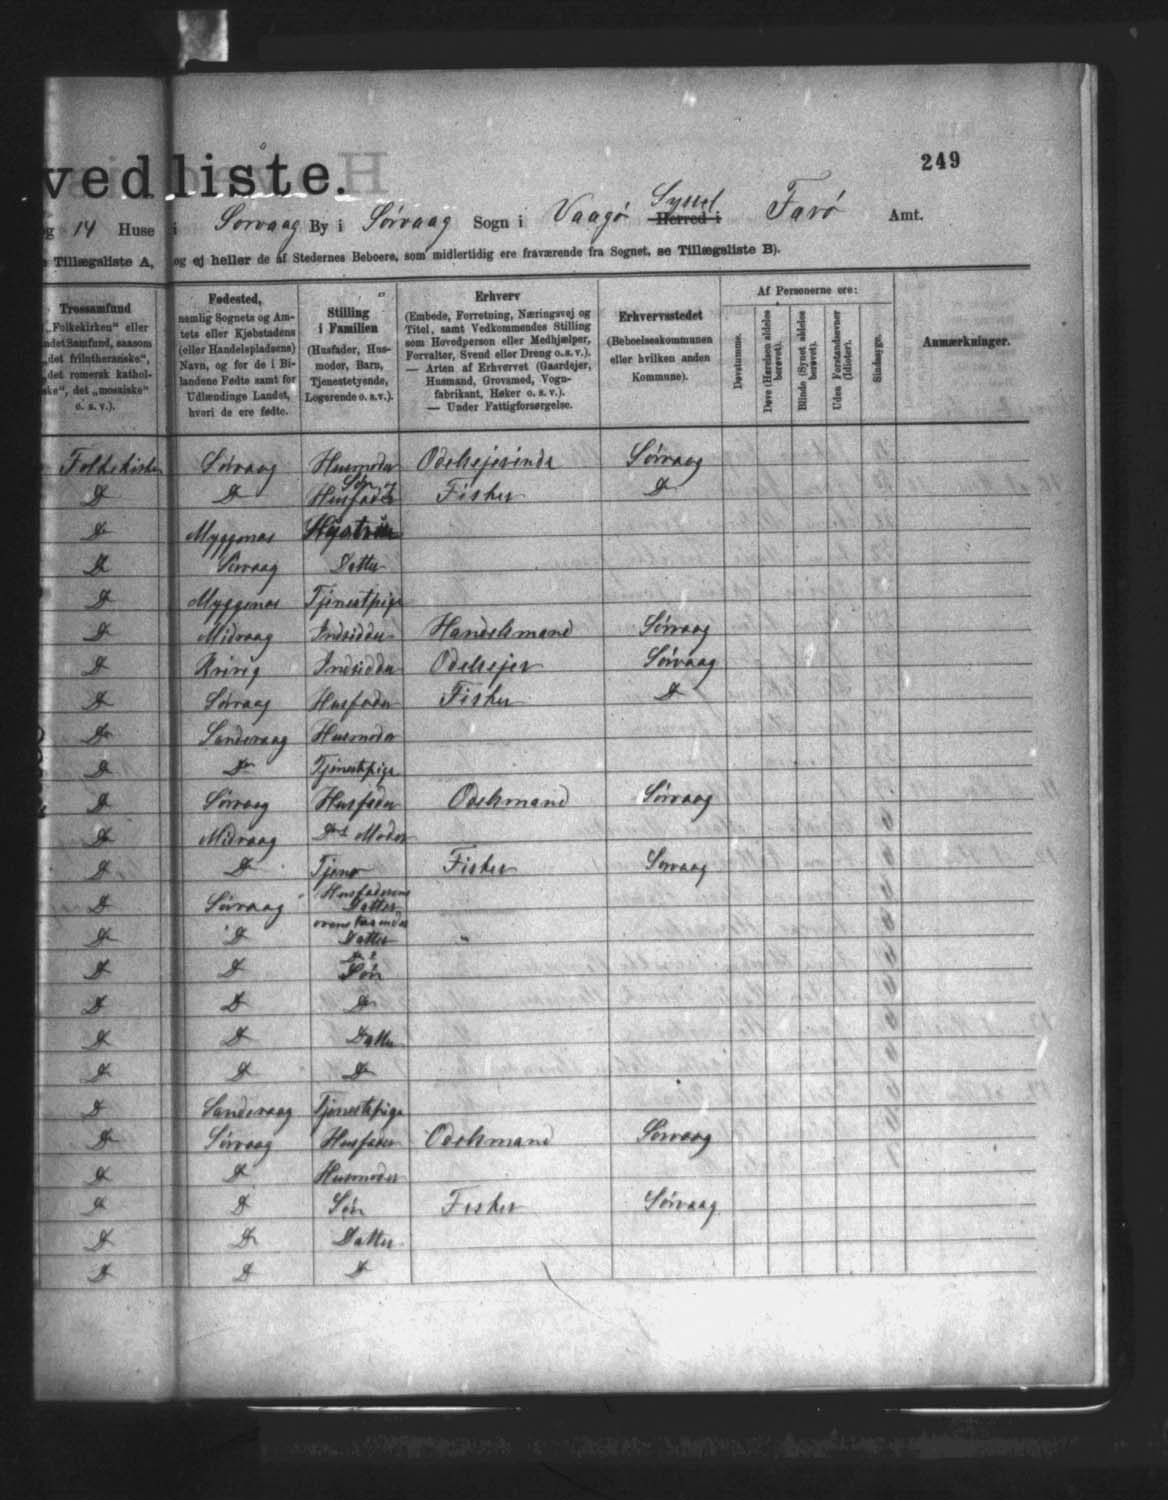 vedliste.
249
g 14 Huse i Sørvaag By i Sørvaag Sogn i Vaagø Syssel Herred i Færø Amt.
Tillægsliste A, og ej heller de af Stedernes Beboere, som midlertidig ere fraværende fra Sognet, se Tillægsliste B).
Trossamfund
(„Folkekirken“ eller
andet Samfund, saasom
„det frilutheranske“,
„det romersk kathol-
ske“, det „mosaiske“
o. s. v.).
Fødested,
nemlig Sognets og Am-
tets eller Kjøbstadens
(eller Handelspladsens)
Navn, og for de i Bi-
landene Fødte samt for
Udlændinge Landet,
hvori de ere fødte.
Stilling
i Familien
(Husfader, Hus-
moder, Barn,
Tjenestetyende,
Logerende o. s. v.).
Erhverv
(Embede, Forretning, Næringsvej og
Titel, samt Vedkommendes Stilling
som Hovedperson eller Medhjælper,
Forvalter, Svend eller Dreng o. s. v.).
— Arten af Erhvervet (Gaardejer,
Husmand, Grovsmed, Vogn-
fabrikant, Høker o. s. v.).
— Under Fattigforsørgelse.
Erhvervsstedet
(Beboelseskommunen
eller hvilken anden
Kommune).
Af Personerne ere:
Døvstumme.
Døve (Hørelsen aldeles
berøvet).
Blinde (Synet aldeles
berøvet).
Uden Forstandsevner
(Idioter).
Sindssyge.
Anmærkninger.
Folkekirken Sørvaag Husmoder Odelsejerinde Sørvaag
Do Do Søn og Husfader Fisker Do
Do Myggenæs Hustru
Do Sørvaag Datter
Do Myggenæs Tjenestpige
Do Midvaag Indsidder Handelsmand Sørvaag
Do Indsidder Odelsejer Sørvaag
Do Sørvaag Husfader Fisker Do
Do Sandevaag Husmoder
Do Do Tjenestpige
Do Sørvaag Husfader Odelsmand Sørvaag
Do Midvaag Ds Moder
Do Do Tjener Fisker Sørvaag
Do Sørvaag Husfaderens Datter
Do Do Datter
Do Do Søn
Do Do Do
Do Do Datter
Do Do Do
Do Sandevaag Tjenestpige
Do Sørvaag Husfader Odelsmand Sørvaag
Do Do Husmoder
Do Do Søn Fisker Sørvaag
Do Do Datter
Do Do Do